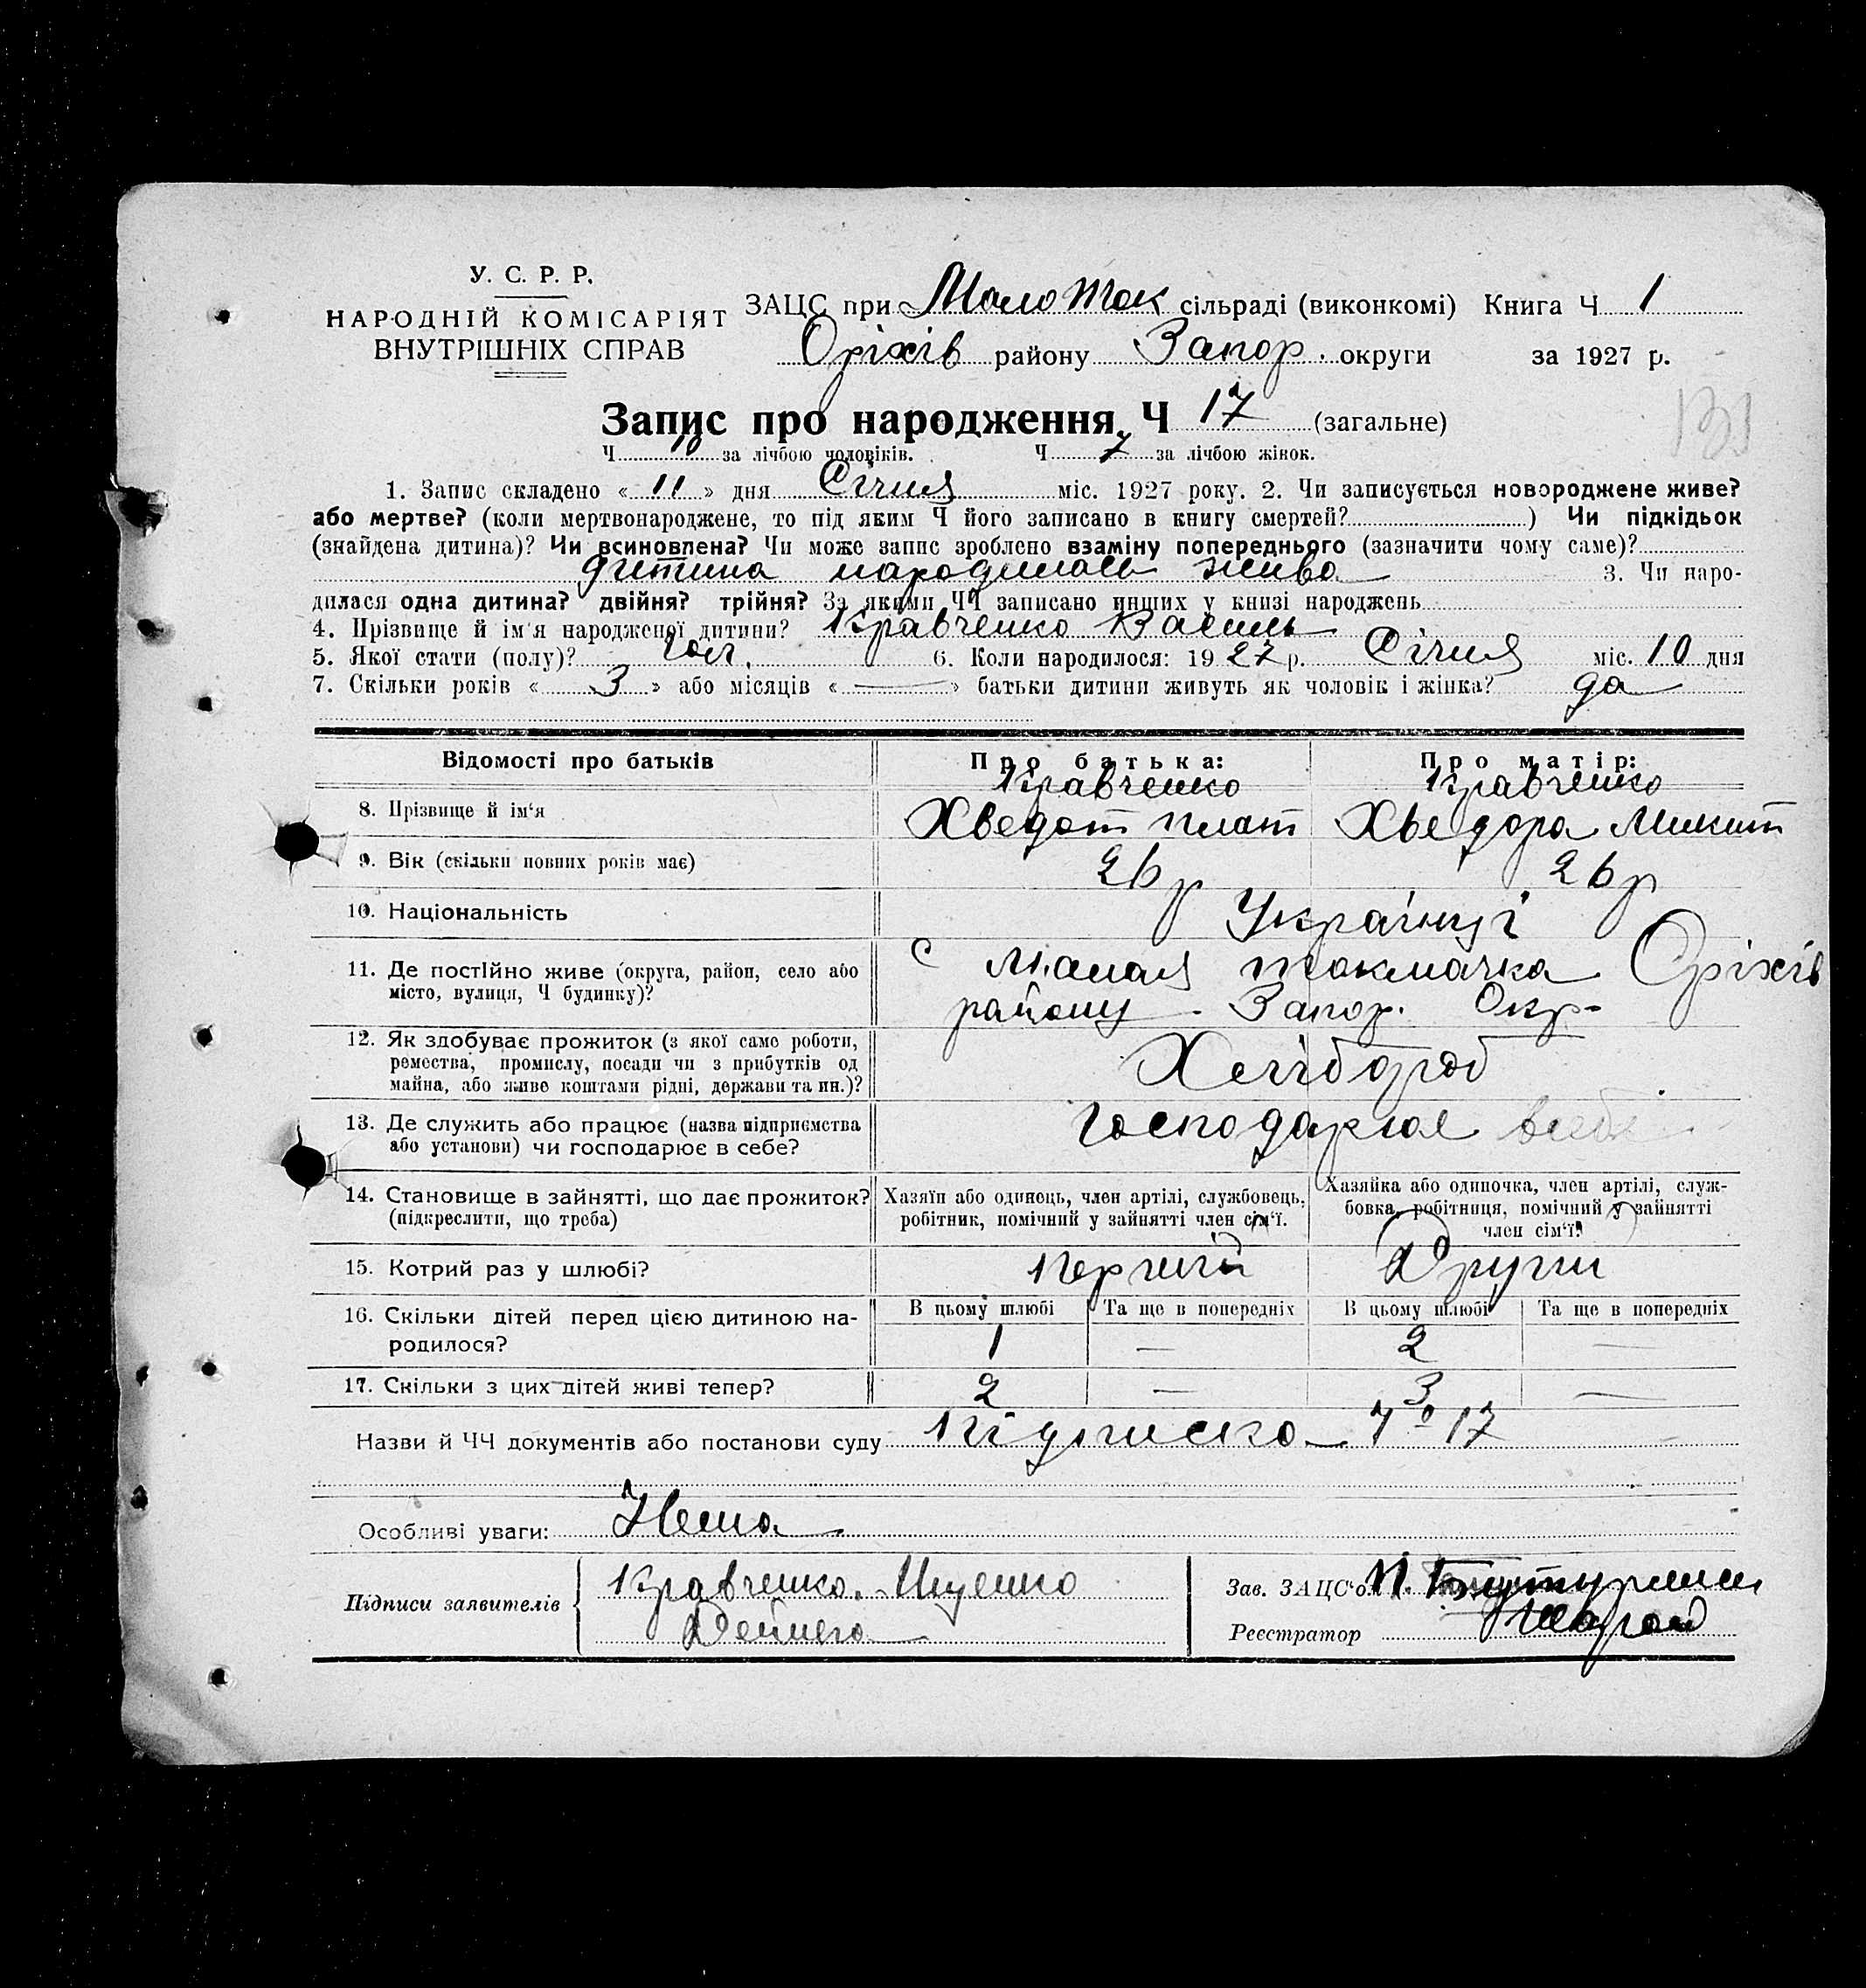 У. С. Р. Р.
НАРОДНІЙ КОМІСАРІЯТ
ВНУТРІШНІХ СПРАВ
ЗАЦС при Мало Ток сільраді (виконкомі) Книга Ч 1
Оріхів району Запор. округи за 1927 р.
131
Запис про народження Ч 17 (загальне)
Ч 10 за лічбою чоловіків. Ч 7 за лічбою жінок.
1. Запис складено « 11 » дня Січня міс. 1927 року. 2. Чи записується новороджене живе?
або мертве? (коли мертвонароджене, то під яким Ч його записано в книгу смертей? ) Чи підкідьок
(знайдена дитина)? Чи всиновлена? Чи може запис зроблено взаміну попереднього (зазначити чому саме)?
дитина народилась жива 3. Чи наро-
дилася одна дитина? двійня? трійня? За якими ЧЧ записано инших у книзі народжень
4. Прізвище й ім'я народженої дитини? Кравченко Василь
5. Якої стати (полу)? чол. 6. Коли народилося: 1927 р. Січня міс. 10 дня
7. Скільки років « 3 » або місяців « — » батьки дитини живуть як чоловік і жінка? да
Відомості про батьків Про батька: Про матір:
8. Прізвище й ім'я Кравченко Хведот Плат Кравченко Хведора Микит
9. Вік (скільки повних років має) 26 р 26 р
10. Національність Українці
11. Де постійно живе (округа, район, село або
місто, вулиця, Ч будинку)? с Малая токмачка Оріхів
району Запор. Окр-
12. Як здобуває прожиток (з якої само роботи,
ремества, промислу, посади чи з прибутків од
майна, або живе коштами рідні, держави та ин.)? Хлібороб
13. Де служить або працює (назва підприємства
або установи) чи господарює в себе? господарює в себе
14. Становище в зайнятті, що дає прожиток?
(підкреслити, що треба)
Хазяїн або одинець, член артілі, службовець,
робітник, помічний у зайнятті член сім'ї.
Хазяйка або одиночка, член артілі, служ-
бовка, робітниця, помічний у зайнятті
член сім'ї?
15. Котрий раз у шлюбі? перший Други
16. Скільки дітей перед цією дитиною на-
родилося?
В цьому шлюбі Та ще в попередніх В цьому шлюбі Та ще в попередніх
1 — 2 —
17. Скільки з цих дітей живі тепер? 2 — 3 —
Назви й ЧЧ документів або постанови суду Ч 17
Особливі уваги: Нема
Підписи заявителів Кравченко. Яценко
Дейнега
Зав. ЗАЦС'ом
Реєстратор